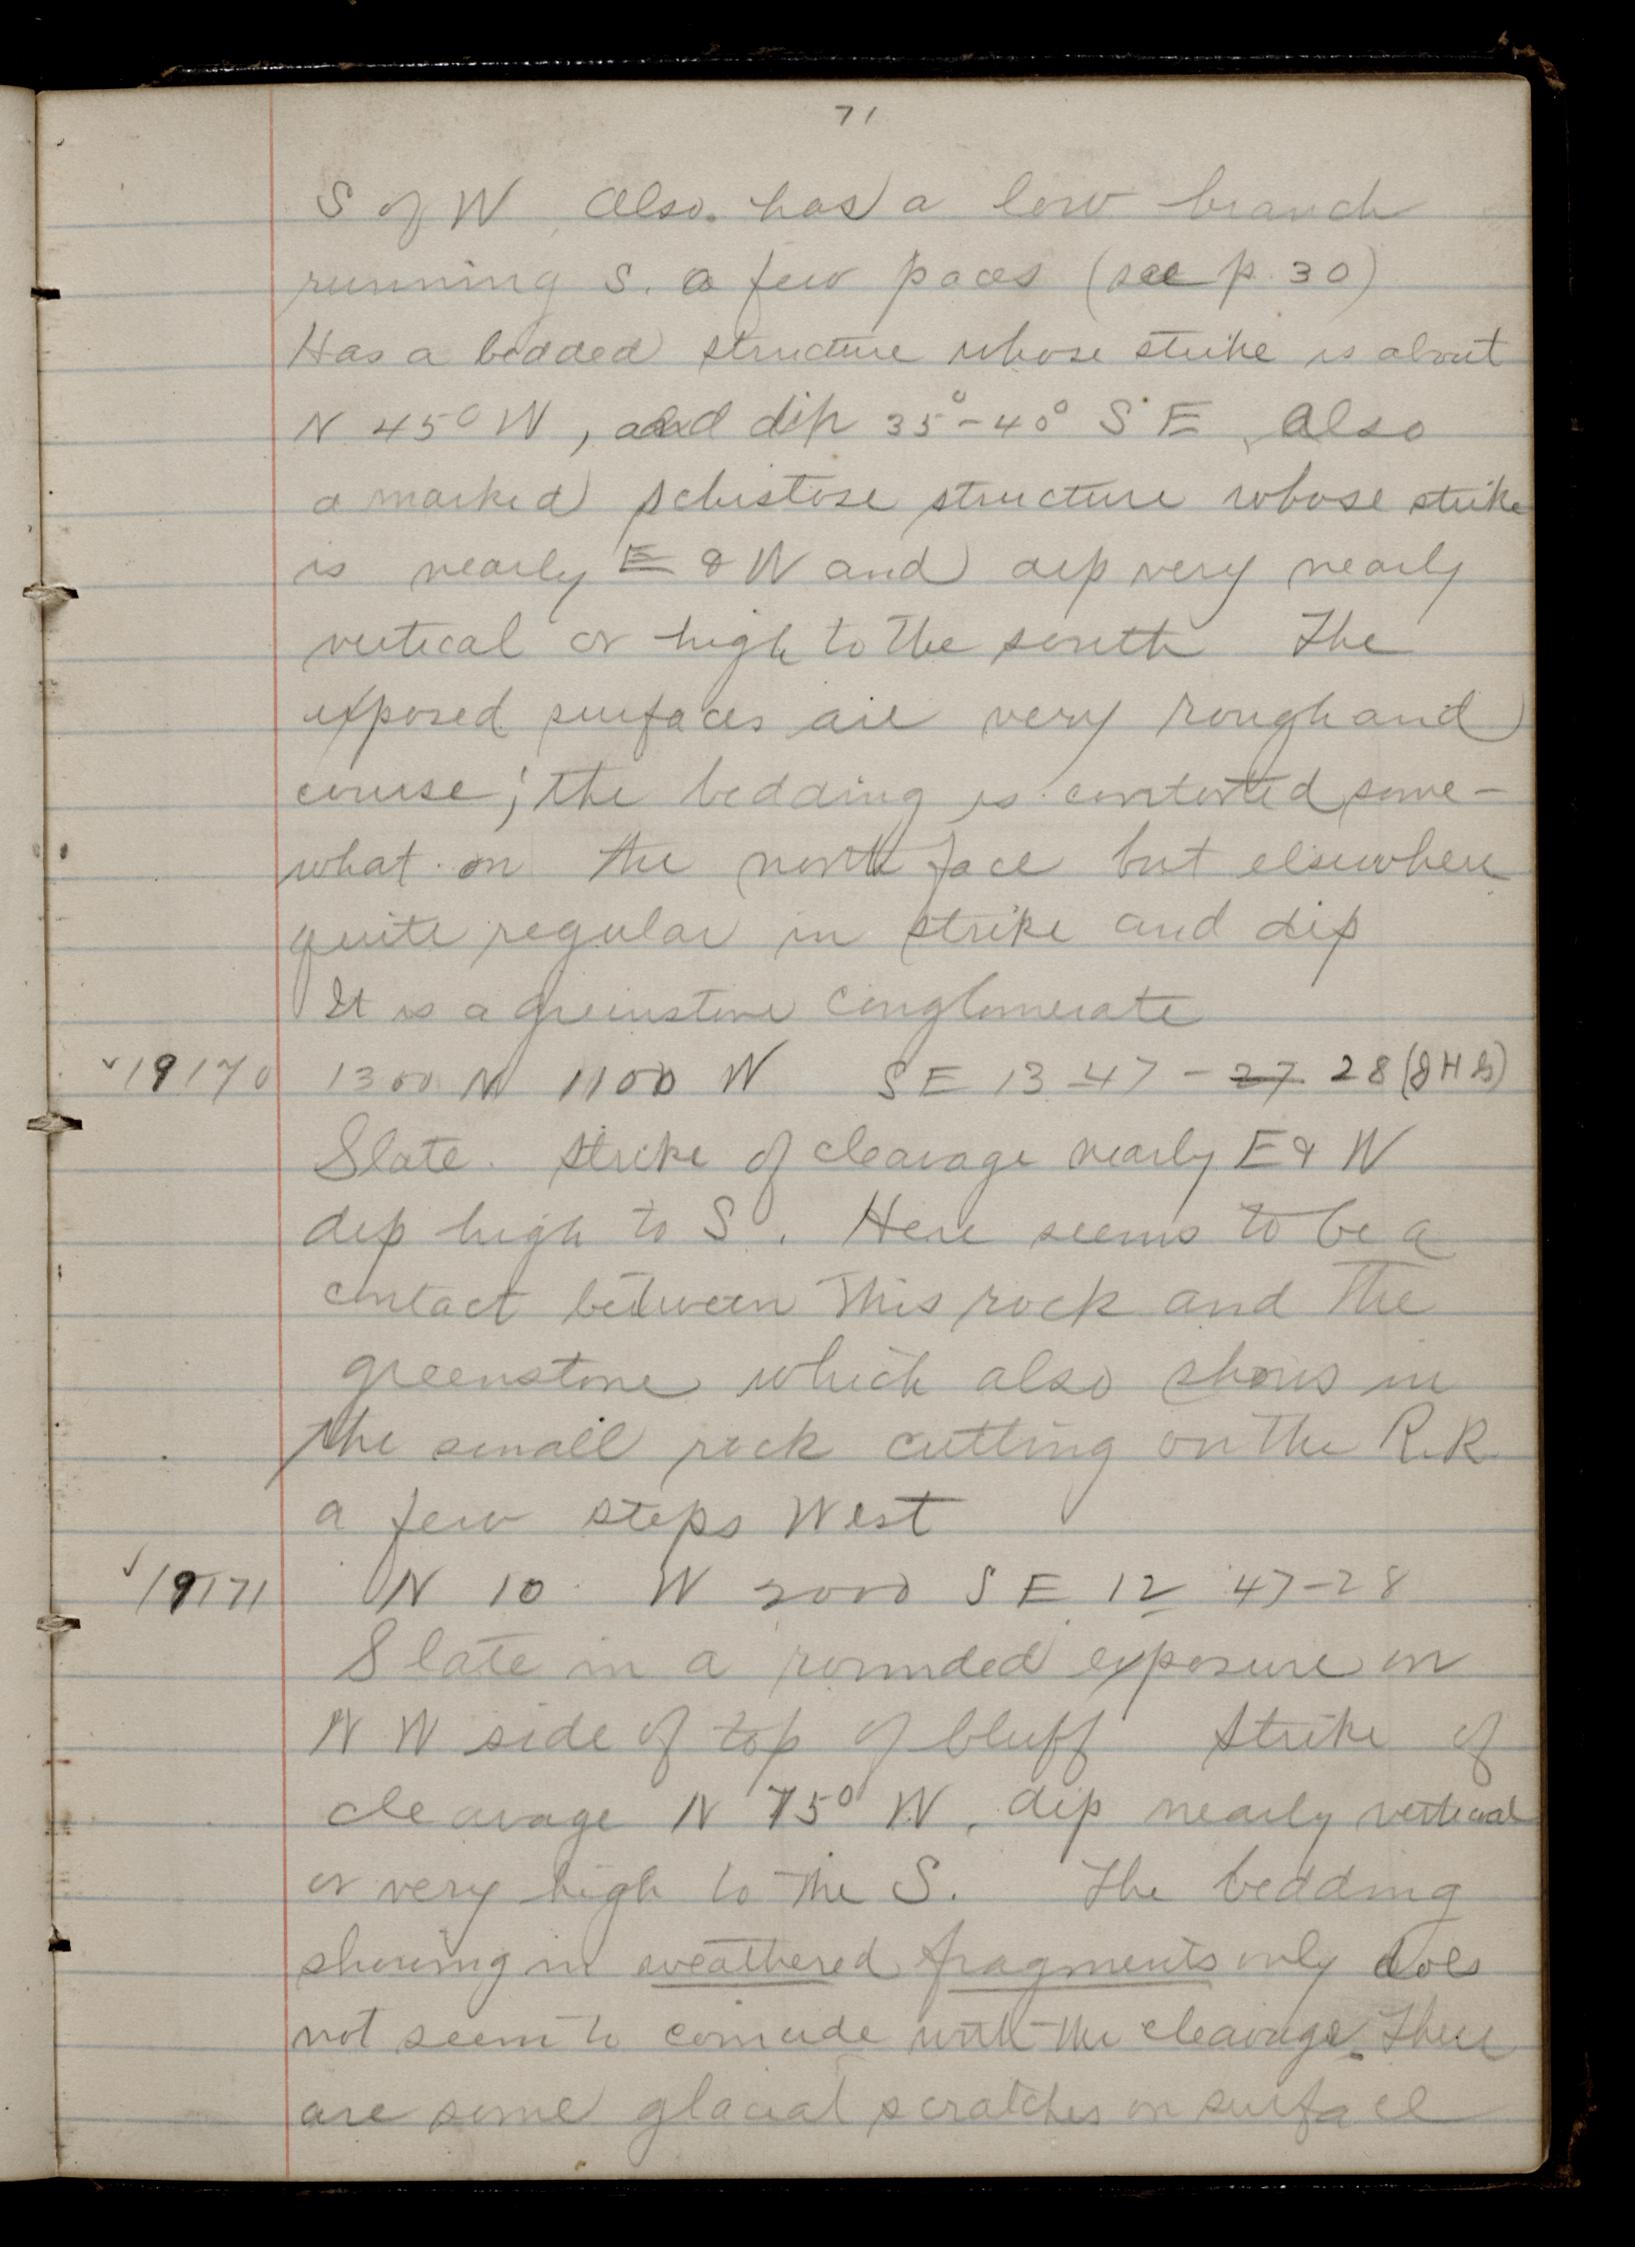 71
S of W. Also has a low branch
running S. a few paces (see p. 30)
Has a bedded structure whose strike is about
N 45° W, and dip 35°-40° S E. Also
a marked schistose structure whose strike
is nearly E & W and dip very nearly
vertical or high to the south The
exposed surfaces are very rough and
course; the bedding is contorted some-
what on the north face but elsewhere
quite regular in strike and dip
It is a greenstone conglomerate
19170 1300 N 1100 W SE 13 47-27 28 (JHS)
Slate. Strike of cleavage nearly E & W
dip high to S. Here seems to be a
contact between this rock and the
greenstone which also shows in
the small rock cutting on the R.R
a few steps West
19171 N 10 W 2000 SE 12 47-28
Slate in a rounded exposure on
N W side of top of bluff Strike of
cleavage N 75° W, dip nearly vertical
or very high to the S. The bedding
showing in weathered fragments only does
not seem to coincide with the cleavage. There
are some glacial scratches on surface